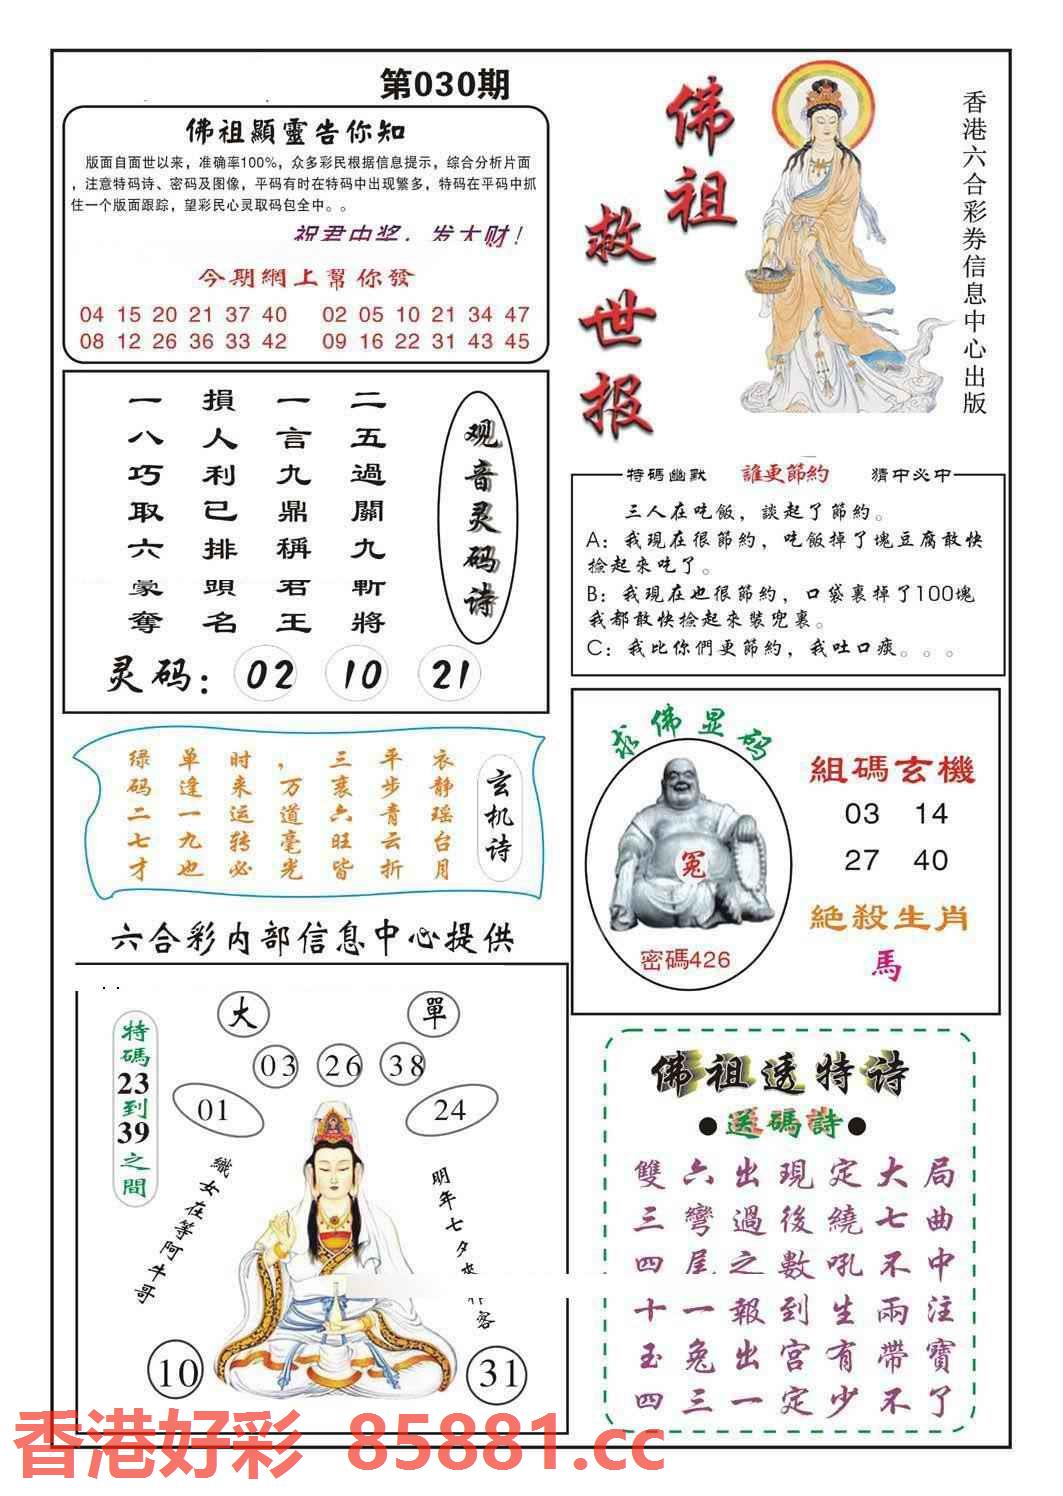 第030期
佛祖顯靈告你知
版面自面世以来，准确率100%，众多彩民根据信息提示，综合分析片面
，注意特码诗、密码及图像，平码有时在特码中出现繁多，特码在平码中抓
住一个版面跟踪，望彩民心灵取码包全中。。
祝君中奖，发大财！
今期網上幫你發
04 15 20 21 37 40 02 05 10 21 34 47
08 12 26 36 33 42 09 16 22 31 43 45
佛祖
救世报
香港六合彩券信息中心出版
观音灵码诗
二五過關九斬將
一言九鼎稱君王
損人利己排頭名
一八巧取六豪奪
灵码： 02 10 21
特碼幽默 誰更節約 猜中必中
三人在吃飯，談起了節約。
A：我現在很節約，吃飯掉了塊豆腐敢快
撿起來吃了。
B：我現在也很節約，口袋裹掉了100塊
我都敢快撿起來裝兜裹。
C：我比你們更節約，我吐口痰。。。
玄机诗
衣静瑶台月
平步青云折
三衰六旺皆
，万道毫光
时来运转必
单逢一九也
绿码二七才
求佛显码
冤
密碼426
組碼玄機
03 14
27 40
絕殺生肖
馬
六合彩内部信息中心提供
特碼23到39之間
大 單
03 26 38
01 24
織女在等阿牛哥
明年七夕
客
10 31
佛祖透特诗
●送碼詩●
雙六出現定大局
三彎過後繞七曲
四尾之數吼不中
十一報到生兩注
玉兔出宮有帶寶
四三一定少不了
香港好彩 85881.cc